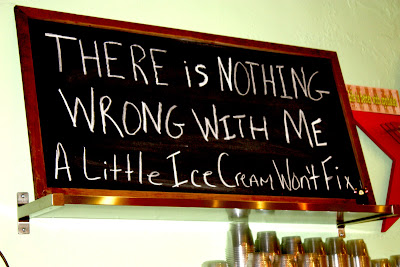 THERE iS NOTHING
WRONG WITH ME
A LittLe Ice Cream Won't Fix.